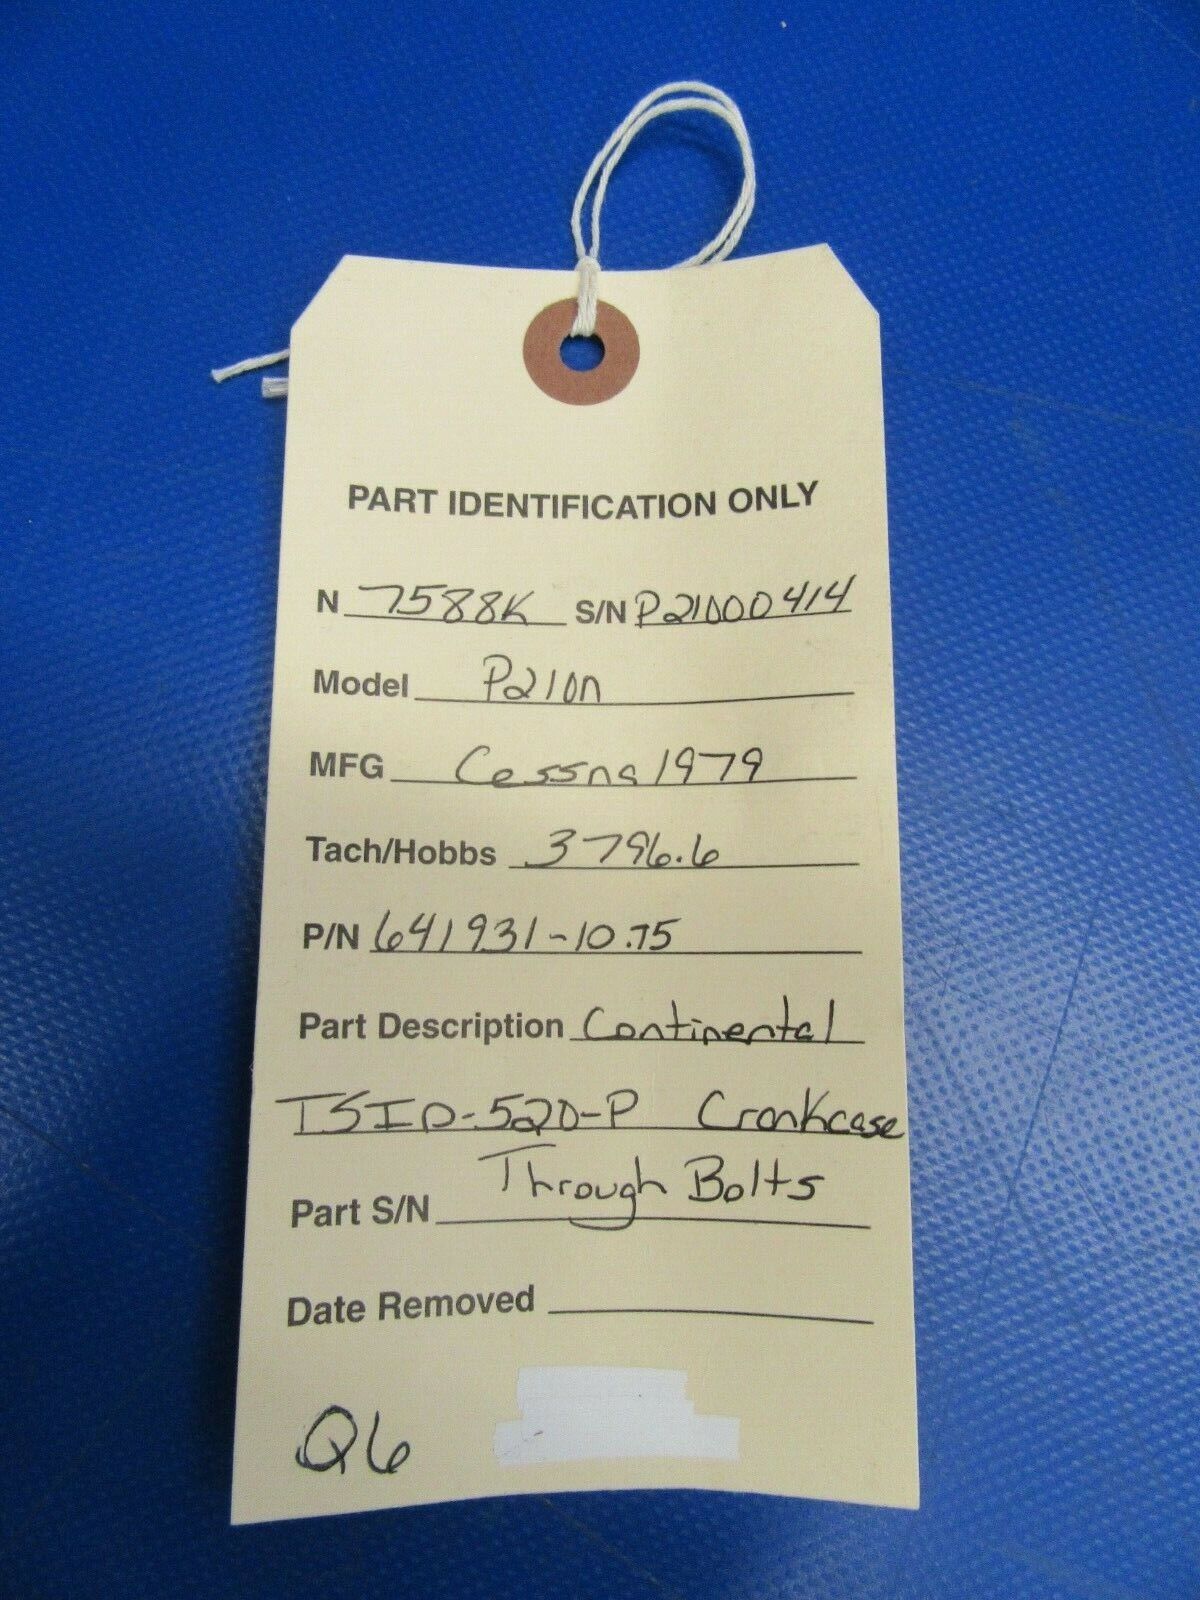 PART IDENTIFICATION ONLY
N 7588K S/N P21000414
Model P210n
MFG Cessna 1979
Tach/Hobbs 3796.6
P/N 641931-10.75
Part Description Continental
TSIO-520-P Crankcase
Through Bolts
Part S/N
Date Removed
Q6